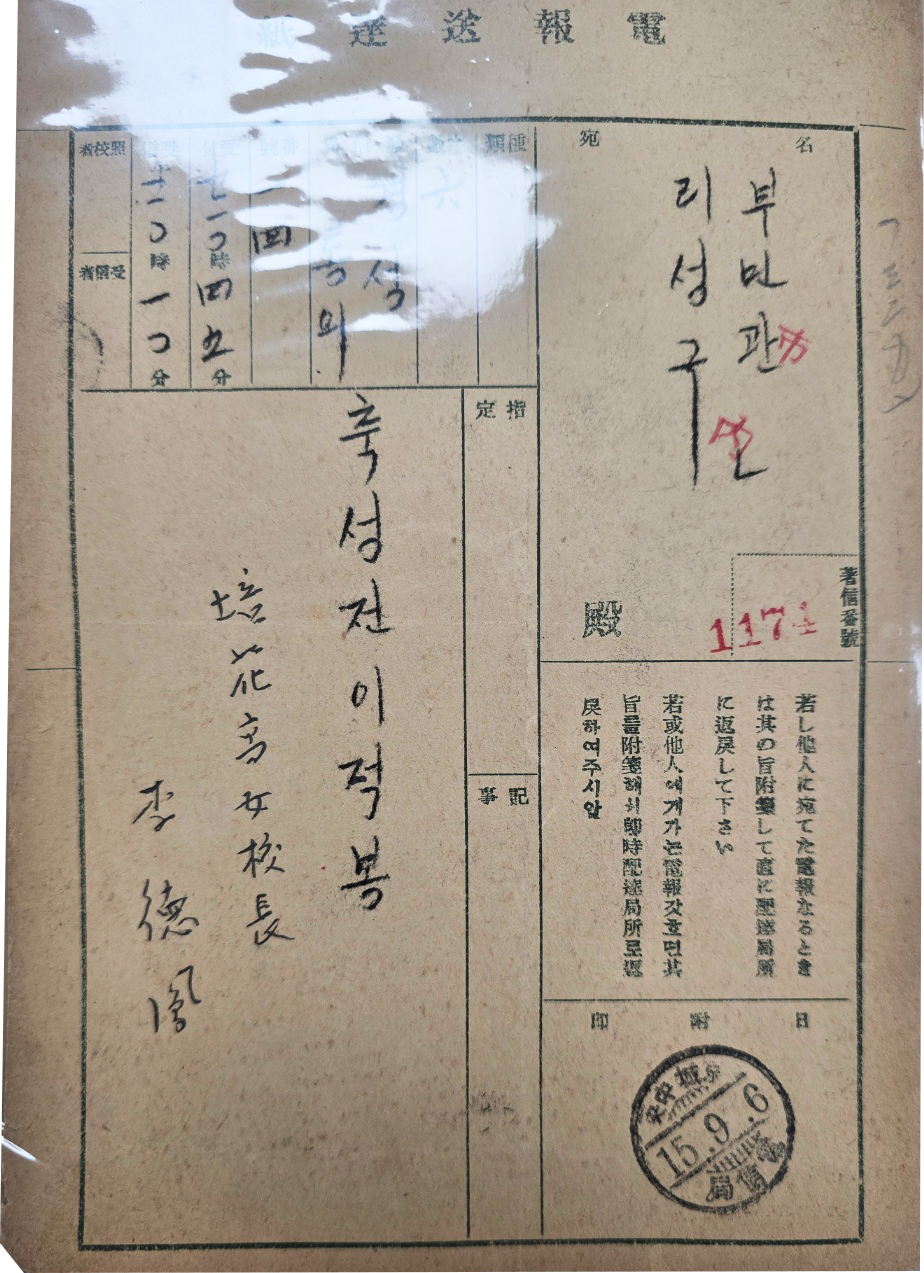 電報送達紙
宛名
부민관
리성구
殿
著信番號
1174
若し他人に宛てた電報なるとき
は其の旨附箋して直に配達局所
に返戻して下さい
若或他人에게가는電報갓흐면其
旨를附箋해서卽時配達局所로返
戾하여주시압
日附印
京城中央
15.9.6
電信局
種類
六
성
동의
一四
十一〇時四五分
十一〇時一〇分
照校者
受信者
指定
記事
축성전이적봉
培花高女校長
李德鳳